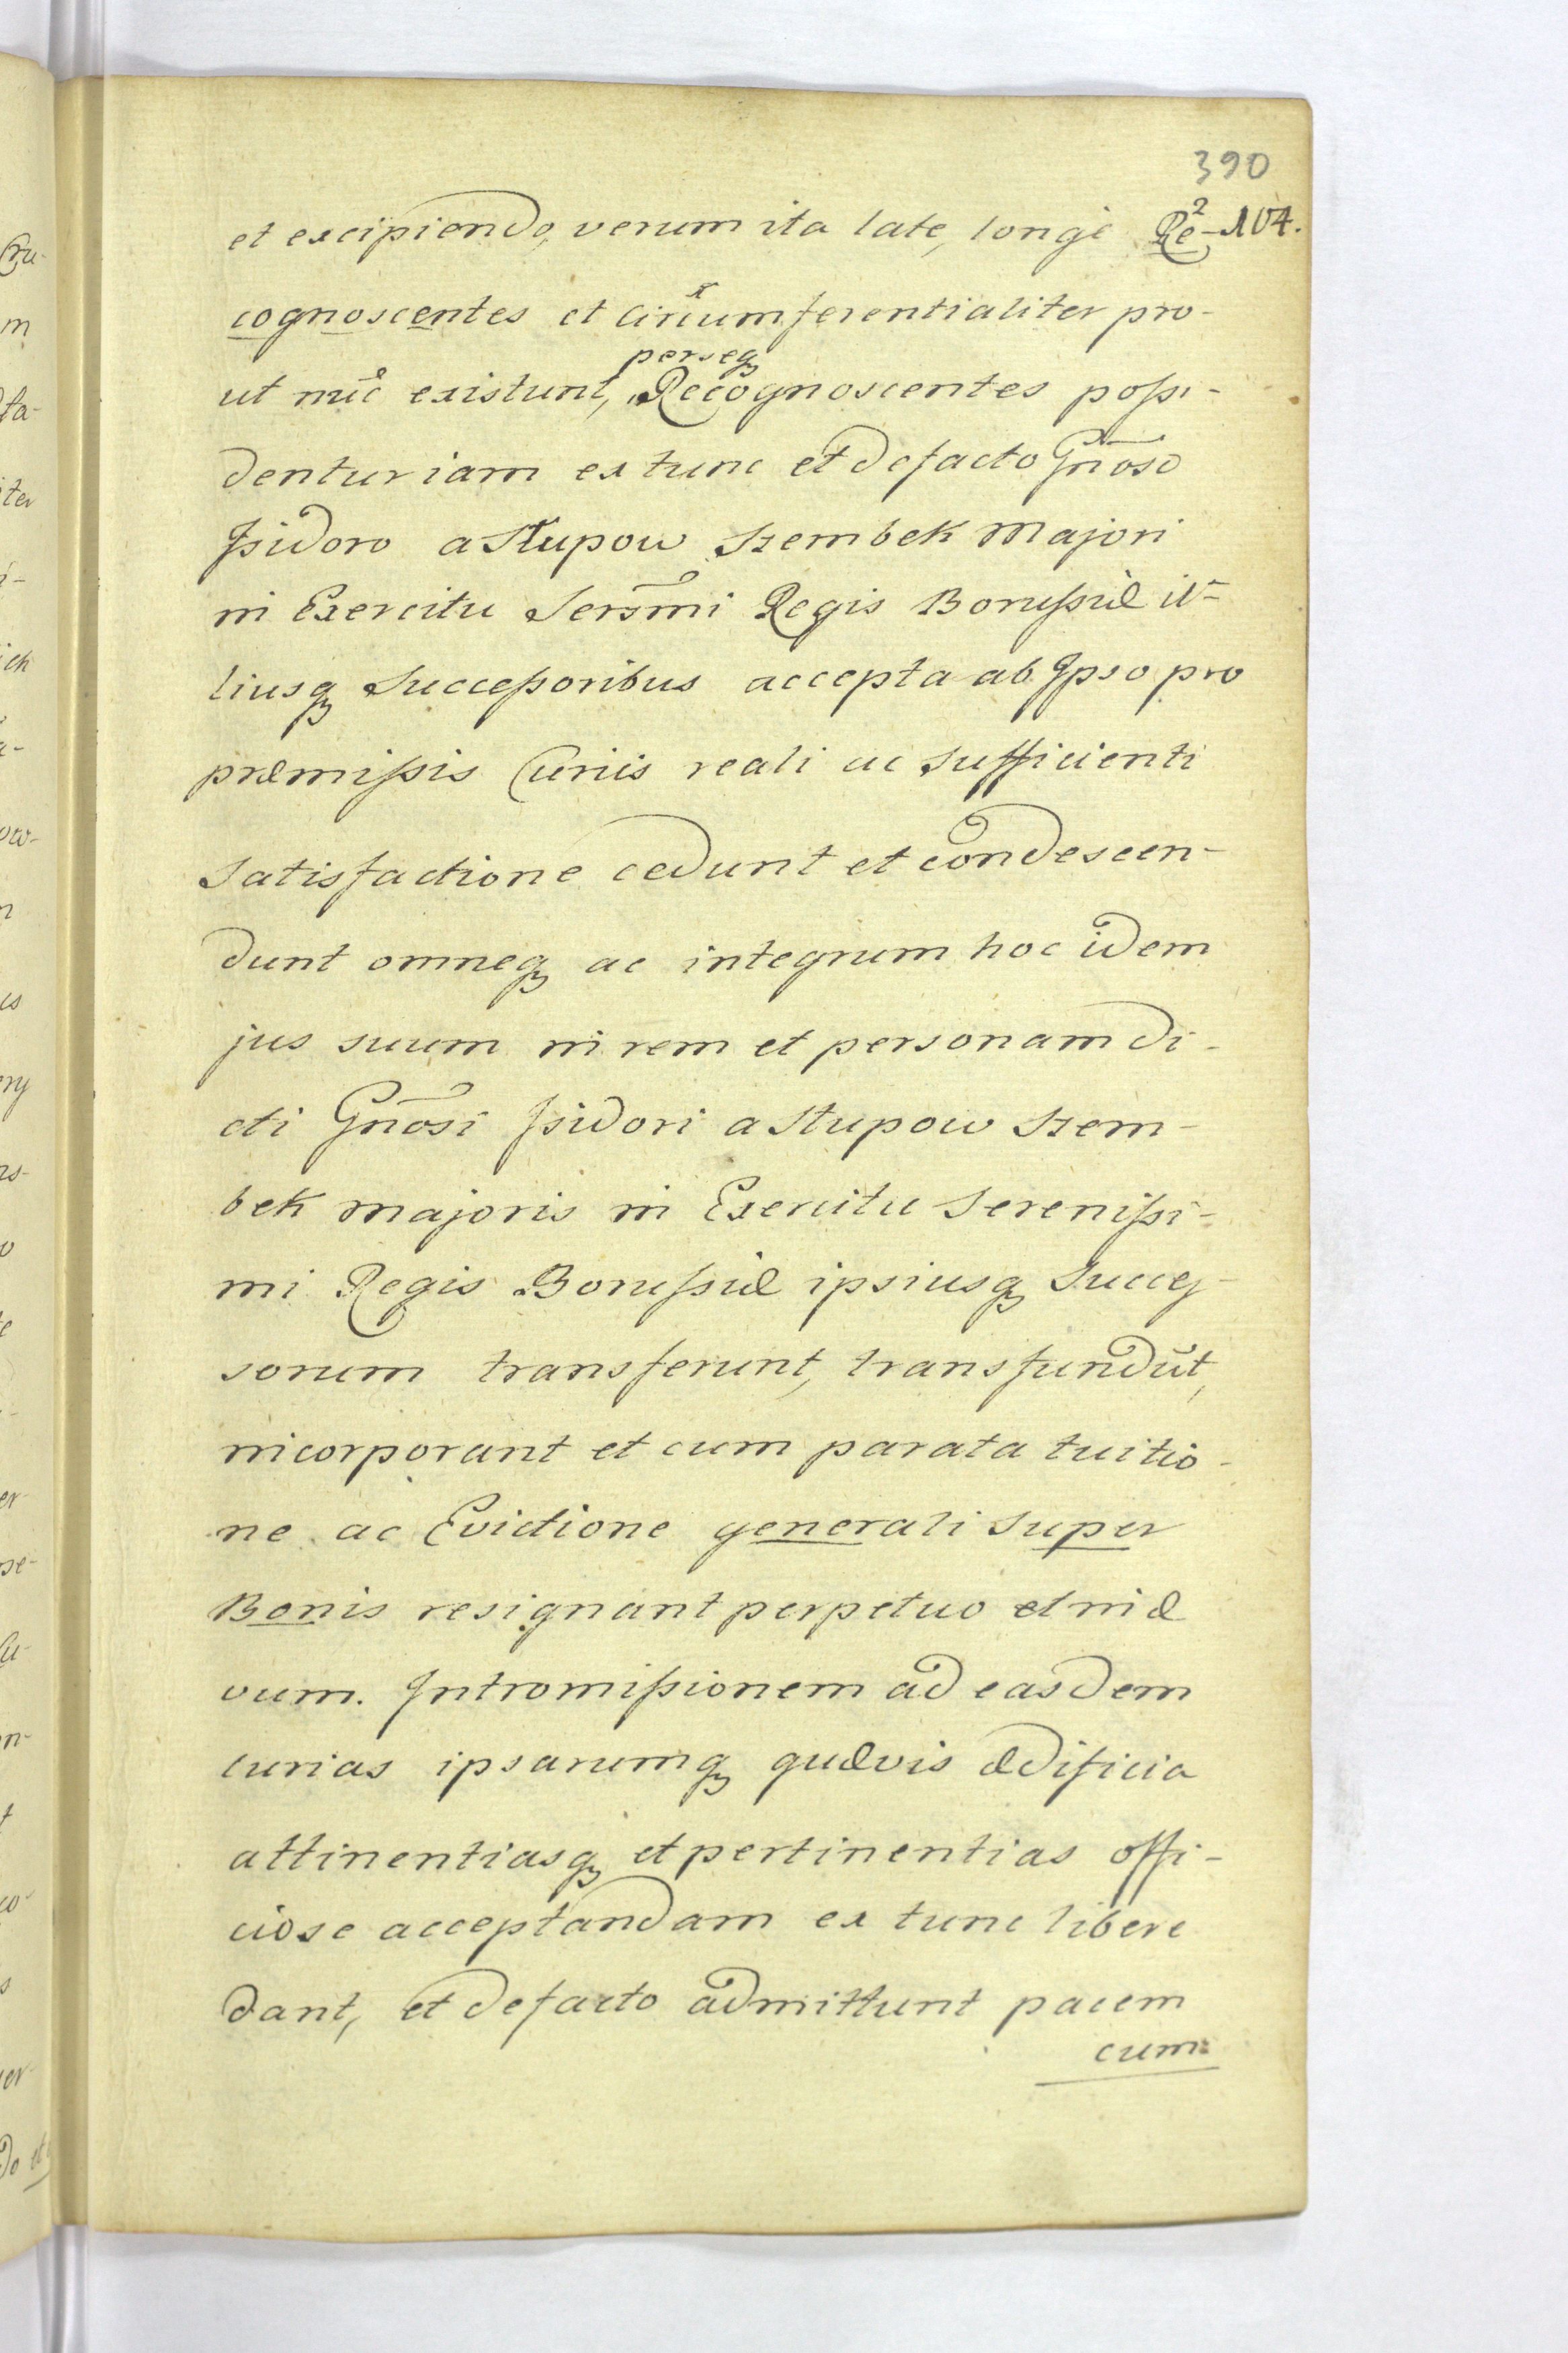 390
et excipiendo, verum ita late, longè Re- 104.
cognoscentes et circumferentialiter pro-
perseq
ut nũc existunt, Recognoscentes possi-
dentur iam ex tunc et defacto Gnõso
Isidoro a Słupow Szembek Majori
in Exercitu Sersm̃i Regis Borussiæ il-
liusq Successoribus accepta ab Ipso pro
præmissis Curiis reali ac sufficienti
satisfactione cedunt et condescen-
dunt omneq ac integrum hoc idem
jus suum in rem et personam di-
cti Gnõsi Isidori a Słupow Szem-
bek Majoris in Exercitu Serenissi-
mi Regis Borussiæ ipsiusq Succes-
sorum transferunt, transfundũt,
incorporant et cum parata tuitio-
ne ac Evictione generali super
Bonis resignant perpetuo et in æ
vum. Intromissionem ad easdem
curias ipsarumq quævis ædificia
attinentiasq et pertinentias offi-
ciose acceptandam ex tunc libere
dant, et defacto admittunt pacem
cum